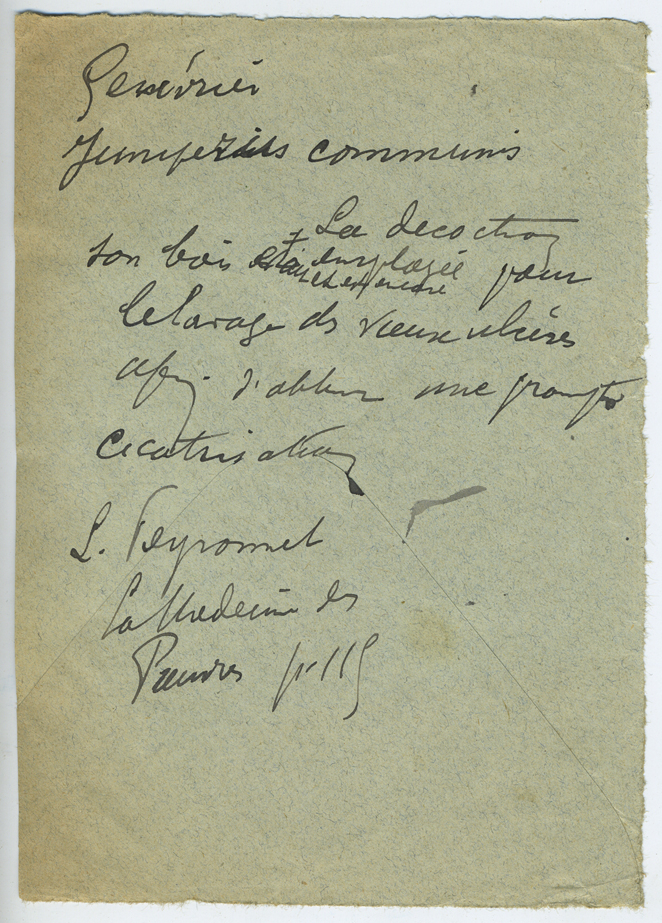 Genévrier
Juniperus communis
La decoction
son bois est employée pour
le lavage des vieux ulcères
afin d'obtenir une prompte
cicatrisation
L. Peyronnet
La Medecine des
Pauvres p. 115